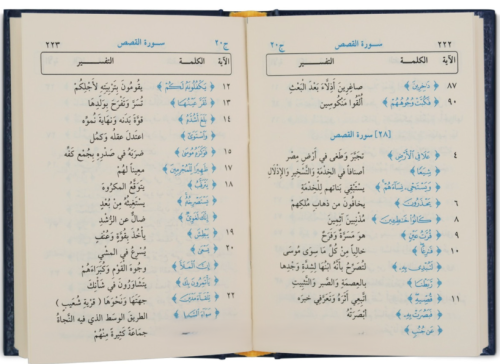 ٢٢٢ سورة القصص ج٢٠
الآية الكلمة التفسير
٨٧ ﴿دَاخِرِينَ﴾ صاغِرِينَ أَذِلّاءَ بَعْدَ الْبَعْثِ
٩٠ ﴿فَكُبَّتْ وُجُوهُهُمْ﴾ أُلْقُوا مَنْكُوسِين
[٢٨] سورة القصص
٤ ﴿عَلَا فِي الْأَرْضِ﴾ تَجَبَّرَ وَطَغى في أَرْضِ مِصْرَ
﴿شِيَعًا﴾ أصنافاً في الْخِدْمَةِ وَالتَّسْخِيرِ وَالإذْلَالِ
﴿وَيَسْتَحْيِي نِسَاءَهُمْ﴾ يَسْتَبْقِي بَنَاتِهِمْ لِلْخِدْمَةِ
٦ ﴿يَحْذَرُونَ﴾ يَخَافُونَ مِن ذهابِ مُلْكِهِمْ
٨ ﴿كَانُوا خَاطِئِينَ﴾ مُذْنِبِينَ آثِمِينَ
٩ ﴿قُرَّتُ عَيْنٍ﴾ هو مَسَرَّةٌ وَفَرَحٌ
١٠ ﴿فَارِغًا﴾ خالياً مِنْ كُلِّ ما سِوَى مُوسَى
﴿لَتُبْدِي بِهِ﴾ لَتُصَرِّحُ بأنَّهُ ابْنُهَا لِشِدَّةِ وَجْدِهَا
﴿رَبَطْنَا﴾ بِالعِصْمَةِ والصَّبْرِ والتَّثْبِيتِ
١١ ﴿قُصِّيهِ﴾ اتْبَعِي أَثَرَهُ وَتَعَرَّفِي خَبَرَهُ
﴿فَبَصُرَتْ بِهِ﴾ أَبْصَرَتْهُ
﴿عَن جُنُبٍ﴾
ج٢٠ سورة القصص ٢٢٣
الآية الكلمة التفسير
١٢ ﴿يَكْفُلُونَهُ لَكُمْ﴾ يقُومُونَ بِتَرْبِيَتِهِ لِأَجْلِكُمْ
١٣ ﴿تَقَرَّ عَيْنُهَا﴾ تُسَرَّ وَتَفْرَحَ بِوَلَدِهَا
١٤ ﴿بَلَغَ أَشُدَّهُ﴾ قُوَّةَ بَدَنِهِ وَنِهايَةَ نُمُوِّه
﴿وَاسْتَوَى﴾ اعتدلَ عقلُه وكَمُل
١٥ ﴿فَوَكَزَهُ مُوسَى﴾ ضَرَبَهُ في صَدْرِهِ بِجُمْعِ كَفِّه
١٧ ﴿ظَهِيرًا لِّلْمُجْرِمِينَ﴾ معيناً لهُمْ
١٨ ﴿يَتَرَقَّبُ﴾ يَتوقَّعُ المَكْرُوهَ
﴿يَسْتَصْرِخُهُ﴾ يَسْتَغِيثُهُ مِنْ بُعْدٍ
﴿إِنَّكَ لَغَوِيٌّ﴾ ضالٌّ عن الرُّشْدِ
١٩ ﴿يَبْطِشَ﴾ يأخُذَ بِقُوَّةٍ وَعُنْفٍ
٢٠ ﴿يَسْعَى﴾ يُسْرِعُ في المَشْيِ
﴿إِنَّ الْمَلَأَ﴾ وجُوهَ الْقَوْمِ وكُبَراءَهُمْ
﴿يَأْتَمِرُونَ بِكَ﴾ يتَشَاوَرُونَ في شَأنِكَ
٢٢ ﴿تِلْقَاءَ مَدْيَنَ﴾ جهَتَهَا وَنَحْوَهَا ( قَرْيَةِ شُعَيْبٍ )
﴿سَوَاءَ السَّبِيلِ﴾ الطريقَ الوسَط الذي فيه النَّجَاةُ
جماعَةً كَثِيرَةً مِنْهُمْ